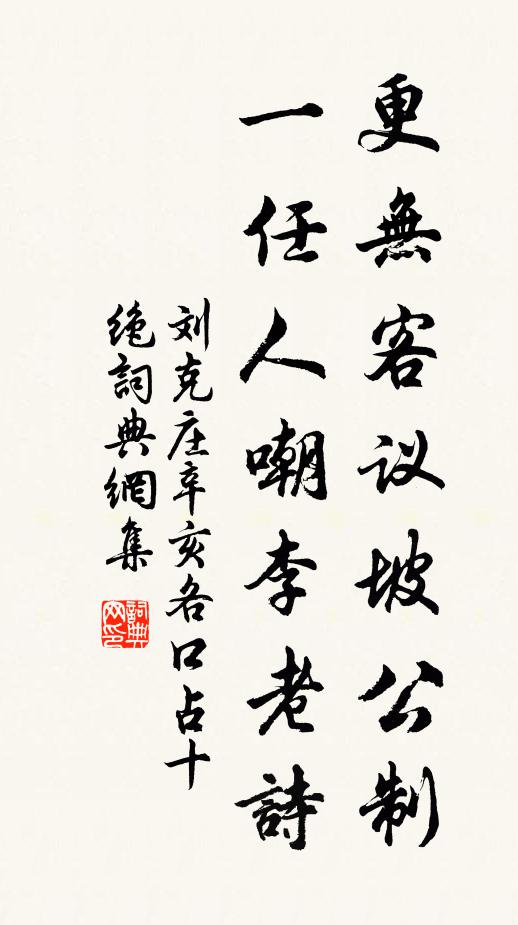 更無客议坡公制
一任人嘲李老詩
刘克庄辛亥各口占十
绝詞典網集
詞典网印